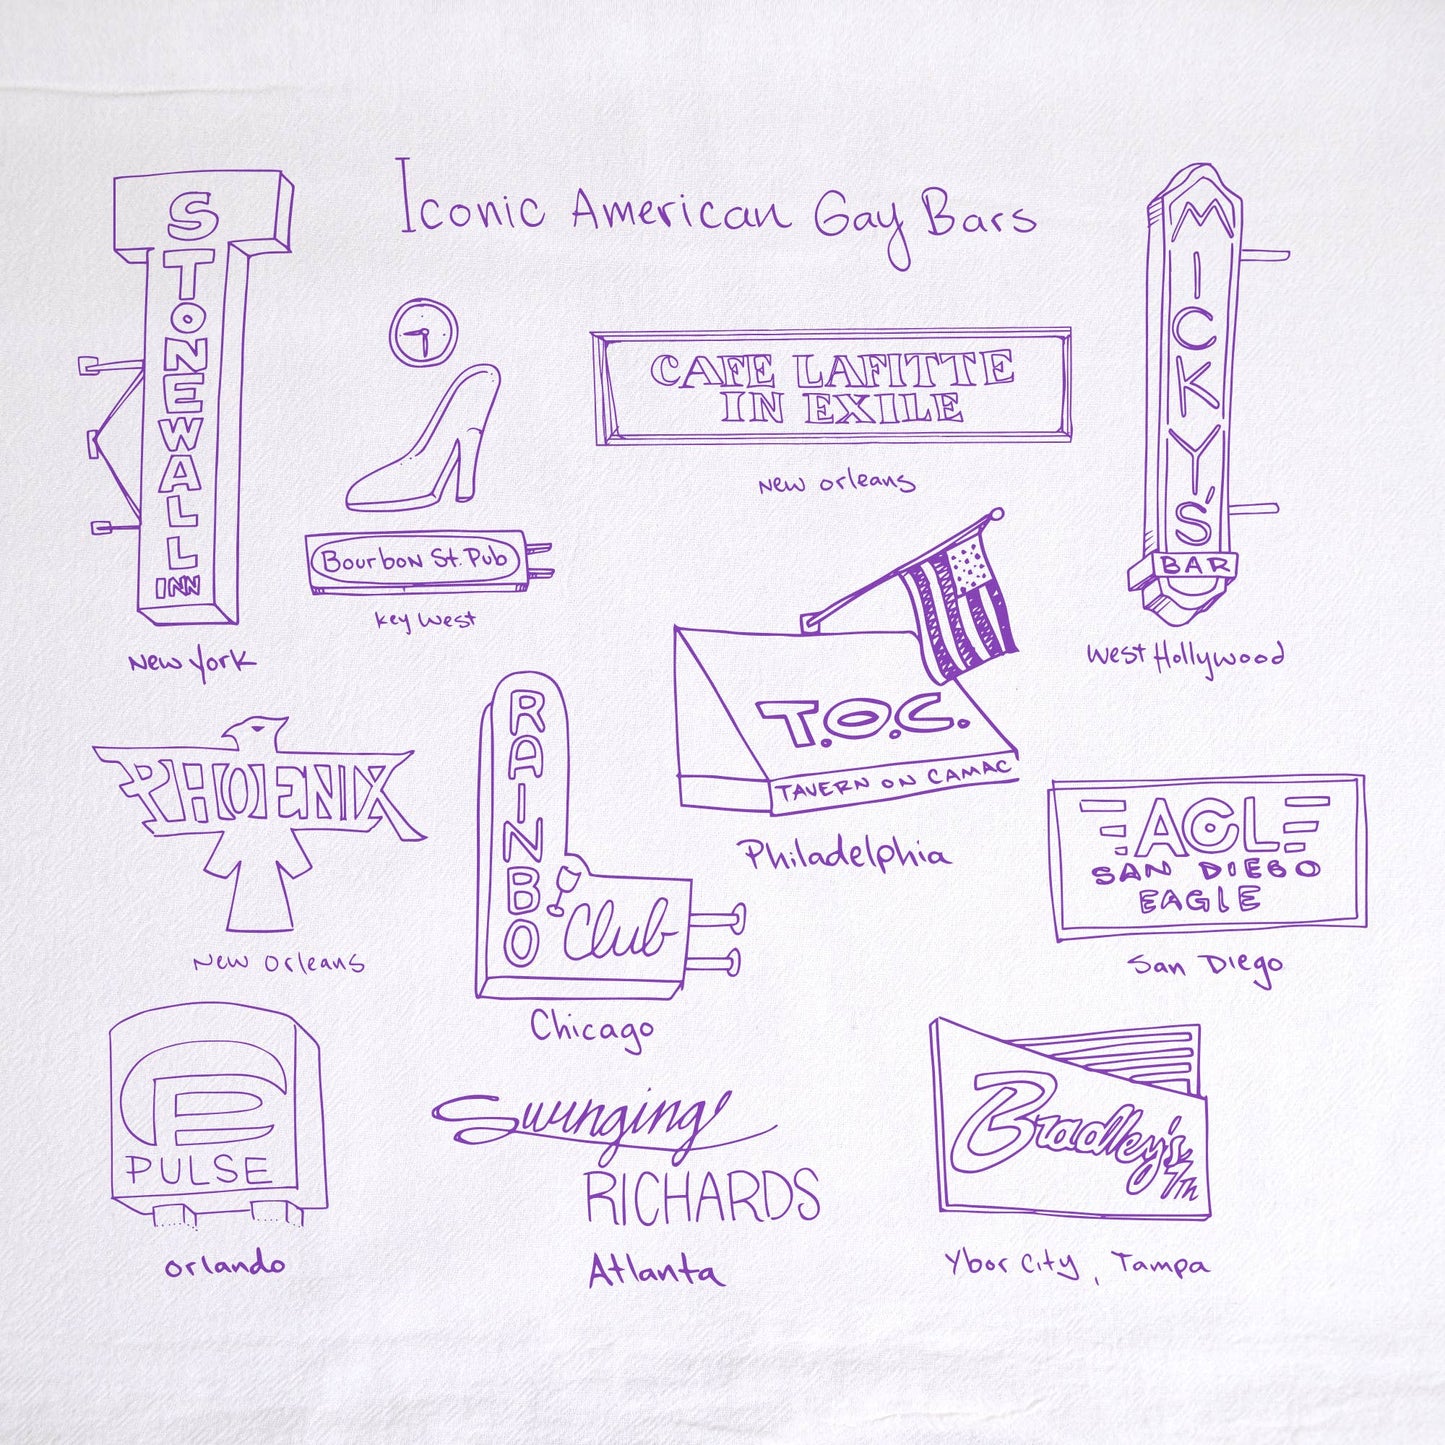 Iconic American Gay Bars
STONEWALL
INN
New York
Bourbon St. Pub
Key West
CAFE LAFITTE
IN EXILE
New Orleans
MICKY'S
BAR
West Hollywood
PHOENIX
New Orleans
RAINBO
Club
Chicago
T.O.C.
TAVERN ON CAMAC
Philadelphia
EAGLE
SAN DIEGO
EAGLE
San Diego
PULSE
Orlando
Swinging
RICHARDS
Atlanta
Bradley's
7th
Ybor City, Tampa